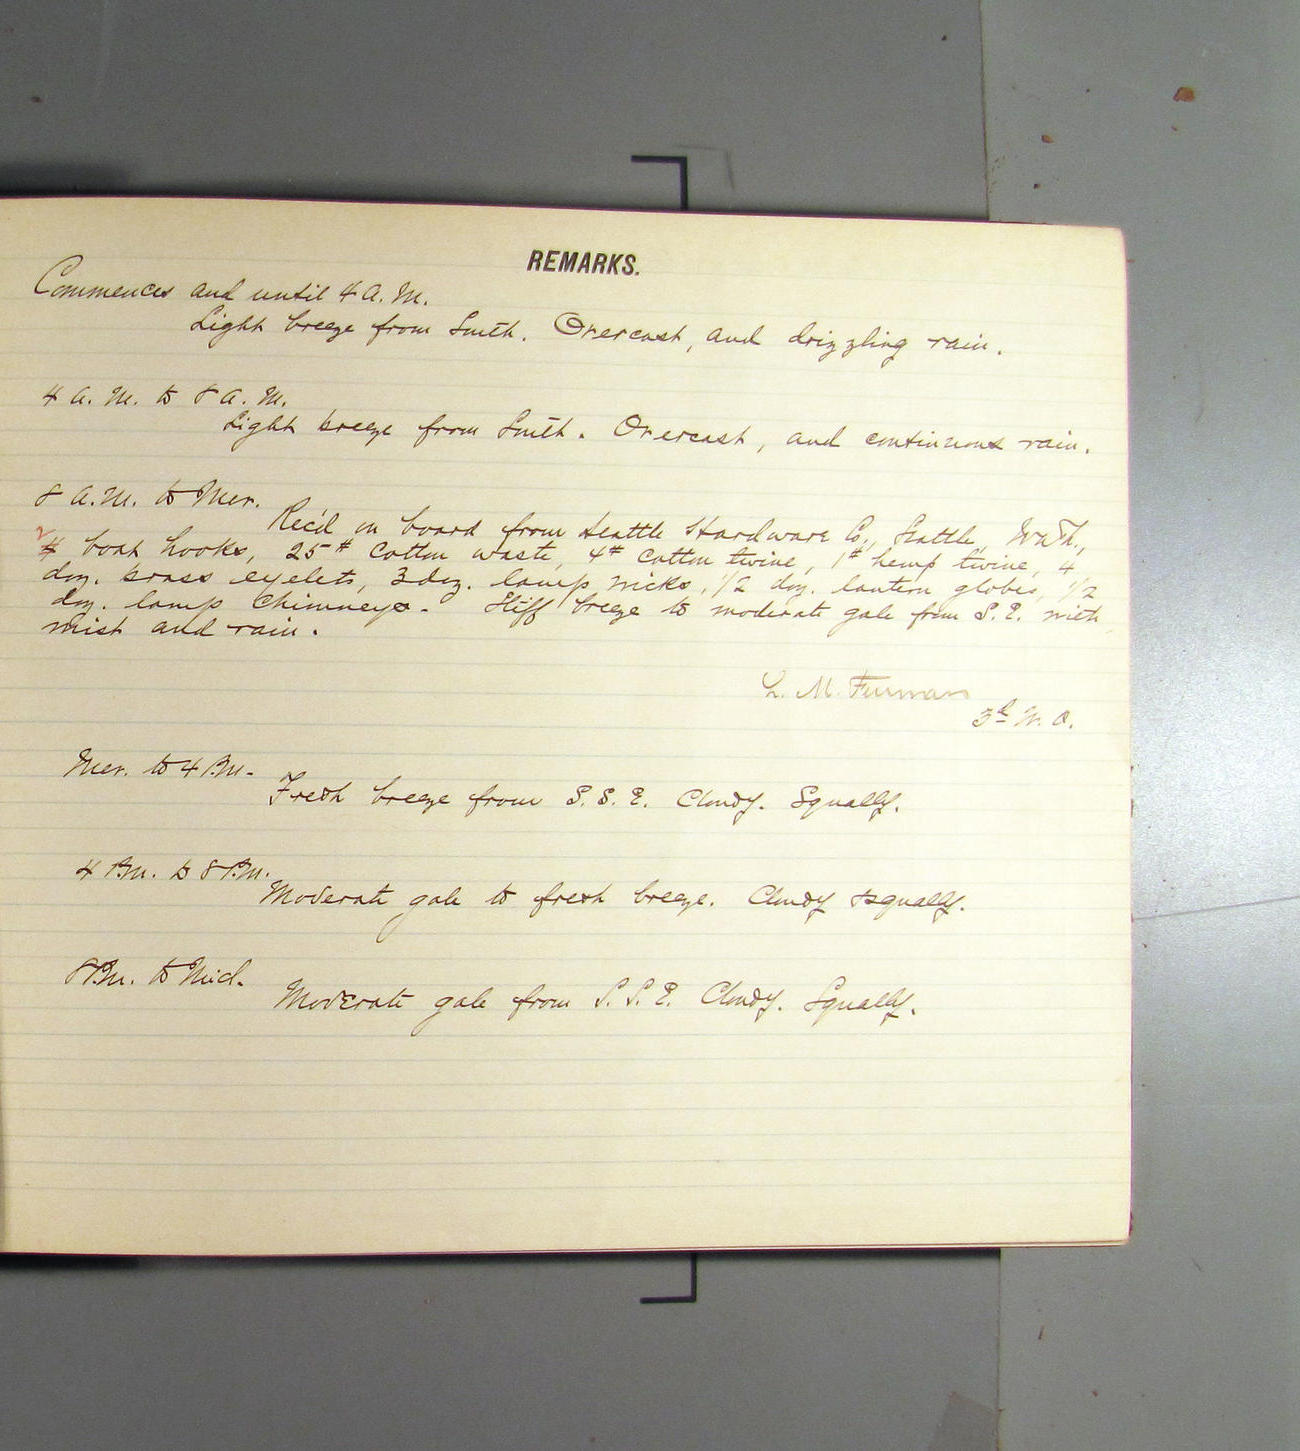 REMARKS.
Commences and until 4 A.M.
Light breeze from South. Overcast, and drizzling rain.
4 A.M. to 8 A.M.
Light breeze from South. Overcast, and continuous rain.
8 A.M. to Mer.
Rec'd on board from Seattle Hardware Co., Seattle, Wash.,
2 4 boat hooks, 25# cotton waste, 4# cotton twine, 1# hemp twine, 4
doz. brass eyelets, 3 doz. lamp wicks, 1/2 doz. lantern globes, 1/2
doz. lamp chimneys. Stiff breeze to moderate gale from S.E. with
mist and rain.
M. Furman
3d W.O.
Mer. to 4 P.M.
Fresh breeze from S.S.E. Cloudy. Squally.
4 P.M. to 8 P.M.
Moderate gale to fresh breeze. Cloudy squally.
8 P.M. to Mid.
Moderate gale from S.S.E. Cloudy. Squally.